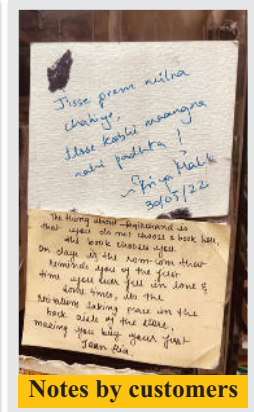 Jisse prem milna
chahiye,
Usse kabhi maangna
nahi padhta !
~ Priya Malik
30/05/22
The thing about is
that you do not choose a book here,
the book chooses you.
On days it's the rom-com that
reminds you of the first
time you ever fell in love &
some times, its the
recitations taking place in the
back aisle of the store,
making you buy your first
Jaun Elia.
Notes by customers